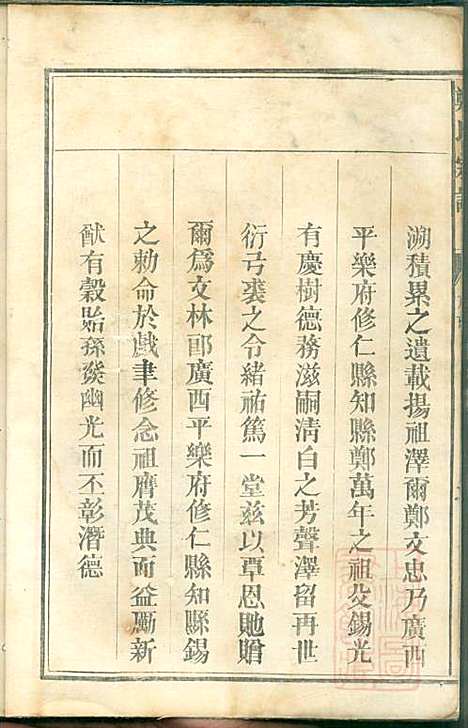 溯積累之遺載揚祖澤爾鄭文忠乃廣西
平樂府修仁縣知縣鄭萬年之祖父錫光
有慶樹德務滋嗣淸白之芳聲澤留再世
衍弓裘之令緒祐篤一堂兹以覃恩貤贈
爾爲文林郎廣西平樂府修仁縣知縣錫
之勅命於戲聿修念祖膺茂典而益勵新
猷有穀貽孫發幽光而丕彰潛德